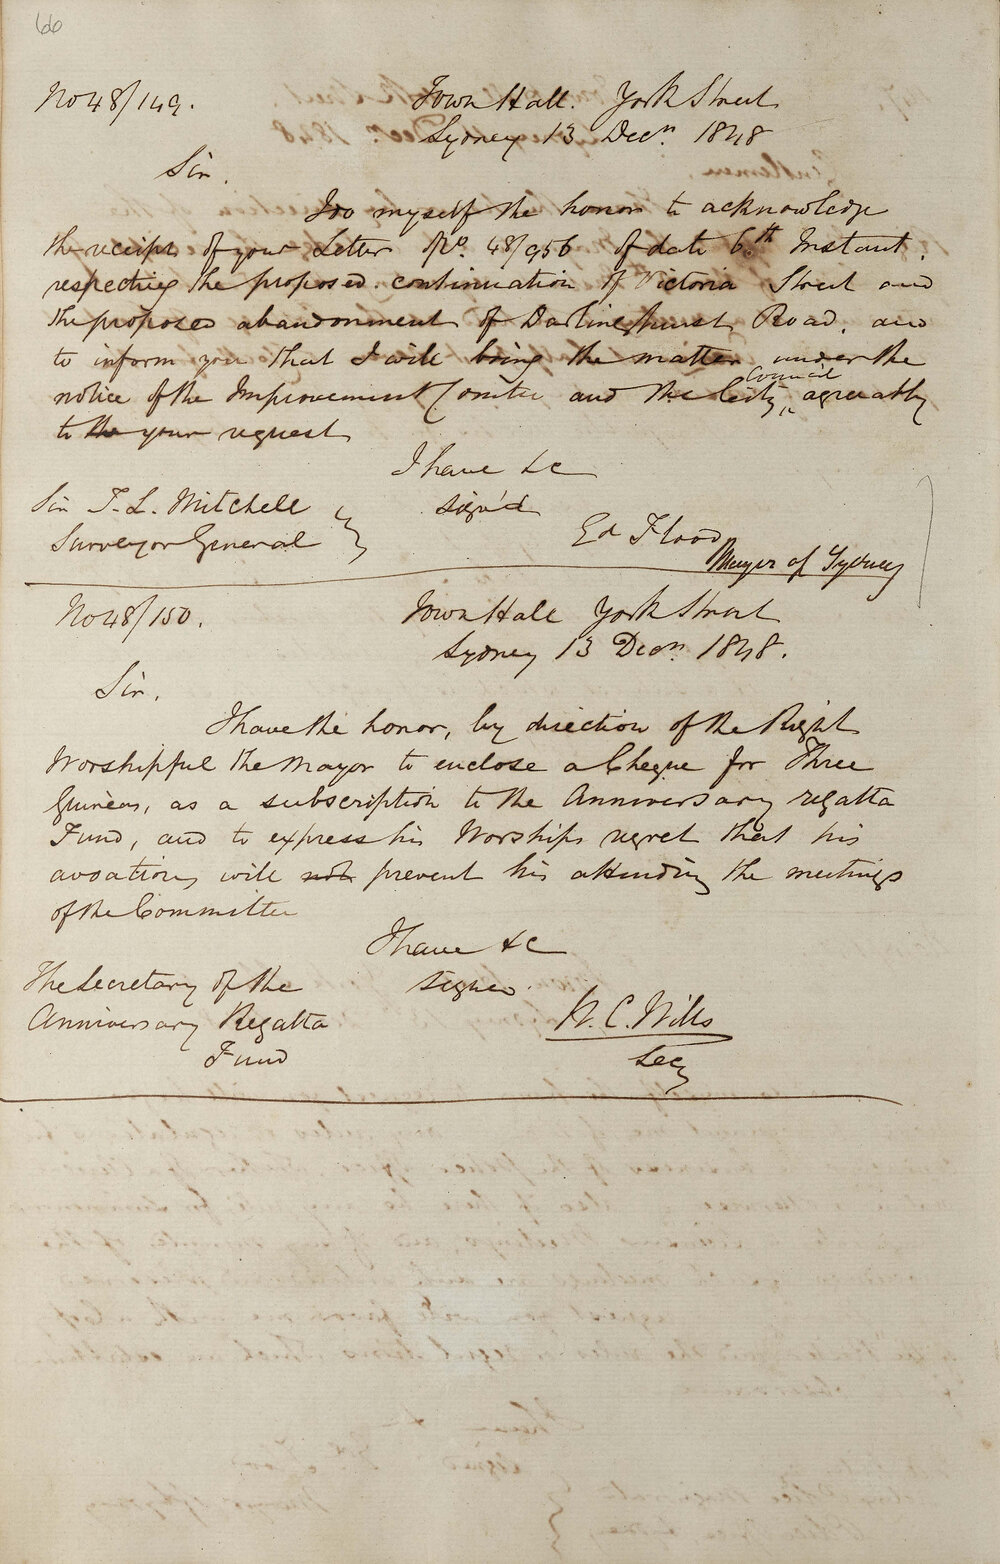 66
No 48/149. Town Hall. York Street
Sydney 13 Decr. 1848
Sir.
I do myself the honor to acknowledge
the receipt of your Letter No. 48/956 of date 6th Instant.
respecting the proposed continuation of Victoria Street and
the proposed abandonment of Darlinghurst Road, and
to inform you that I will bring the matter under the
notice of the Improvement Comittee and the City Council, agreeably
to the your request
I have &c
sign'd
Sir T. L. Mitchell
Surveyor General
Ed Flood
Mayor of Sydney
No 48/150. Town Hall York Street
Sydney 13 Decr. 1848.
Sir,
I have the honor, by direction of the Right
Worshipful the Mayor to enclose a Cheque for Three
Guineas, as a subscription to the Anniversary regatta
Fund, and to express his Worships regret that his
avocations will not prevent his attending the meetings
of the Committee
I have &c
signed
The Secretary of the
Anniversary Regatta
Fund
W. C. Wills
Secy